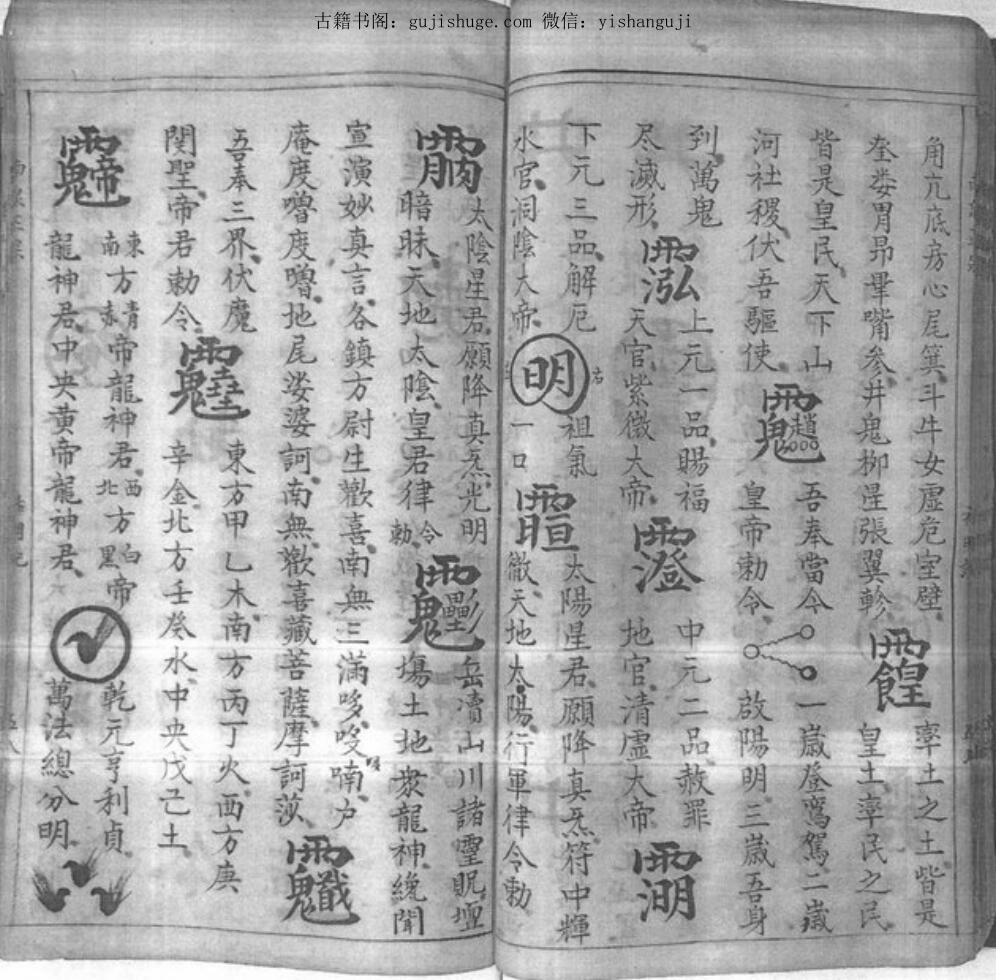 古籍书阁：gujishuge.com 微信：yishanguji
角亢底房心尾箕斗牛女虛危室壁
奎娄胃昴畢嘴參井鬼柳星張翼軫
率土之土皆是
皇土率民之民
皆是皇民天下山
河社稷伏吾驅使
吾奉當今
皇帝勅令
一歲登鸞駕二歲
啟陽明三歲吾身
到萬鬼
尽滅形
上元一品賜福
天官紫微大帝
中元二品赦罪
地官清虛大帝
下元三品解厄
水官洞陰大帝
明
右
祖氣
一口
太陽星君願降真炁符中輝
徹天地太陽行軍律令勅
太陰星君願降真炁光明
暗昧天地太陰皇君律令勅
岳瀆山川諸靈貺壇
塲土地衆龍神纔聞
宣演妙真言各鎮方尉生歡喜南無三滿哆唆喃户
庵度嚕度嚕地尾娑婆訶南無歡喜藏菩薩摩訶莎
吾奉三界伏魔
関聖帝君勅令
東方甲乙木南方丙丁火西方庚
辛金北方壬癸水中央戊己土
東南方青赤帝龍神君西北方白黑帝
龍神君中央黄帝龍神君
乾元亨利貞
萬法總分明